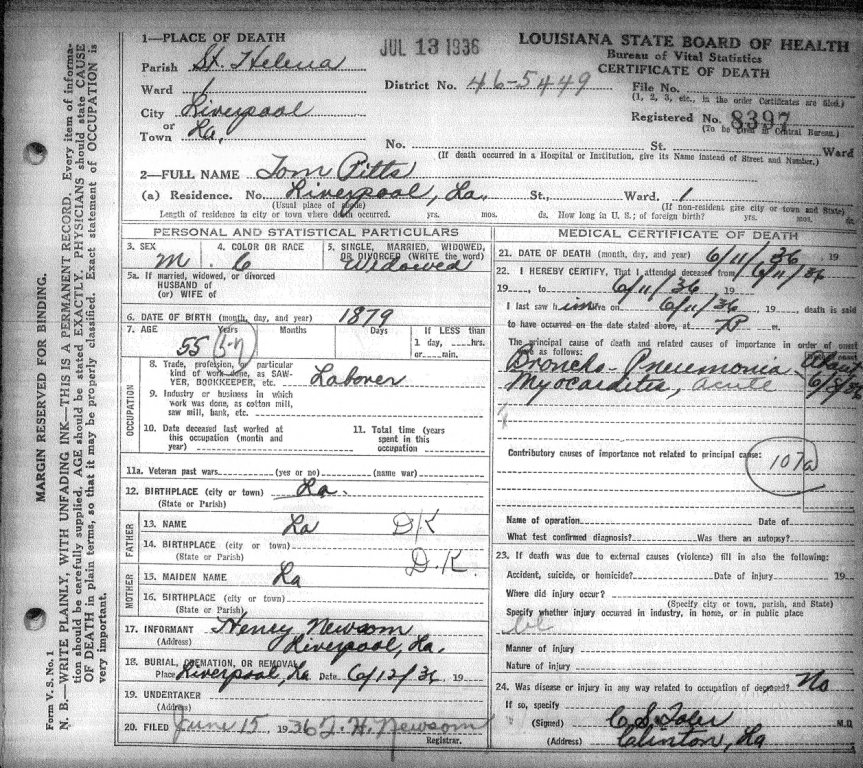 JUL 13 1936
LOUISIANA STATE BOARD OF HEALTH
Bureau of Vital Statistics
CERTIFICATE OF DEATH
1—PLACE OF DEATH
Parish St. Helena
Ward 1
City Liverpool
or
Town La.
District No. 46-5449
File No.
(1, 2, 3, etc., in the order Certificates are filed.)
Registered No. 8397
(To be used in Central Bureau.)
No. St. Ward
(If death occurred in a Hospital or Institution, give its Name instead of Street and Number.)
2—FULL NAME Tom Pitts
(a) Residence. No. Liverpool, La. St., Ward. 1
(Usual place of abode) (If non-resident give city or town and State)
Length of residence in city or town where death occurred. yrs. mos. ds. How long in U. S.; of foreign birth? yrs. mos. ds.
PERSONAL AND STATISTICAL PARTICULARS
3. SEX M. 4. COLOR OR RACE C 5. SINGLE, MARRIED, WIDOWED, OR DIVORCED (WRITE the word) Widowed
5a. If married, widowed, or divorced
HUSBAND of
(or) WIFE of
6. DATE OF BIRTH (month, day, and year) 1879
7. AGE Years Months Days If LESS than
55 (57) 1 day, hrs.
or min.
OCCUPATION
8. Trade, profession, or particular
kind of work done, as SAW-
YER, BOOKKEEPER, etc. Laborer
9. Industry or business in which
work was done, as cotton mill,
saw mill, bank, etc.
10. Date deceased last worked at
this occupation (month and
year)
11. Total time (years
spent in this
occupation
11a. Veteran past wars (yes or no) (name war)
12. BIRTHPLACE (city or town) La.
(State or Parish)
FATHER
13. NAME La DK
14. BIRTHPLACE (city or town)
(State or Parish) D.K.
MOTHER
15. MAIDEN NAME La
16. BIRTHPLACE (city or town)
(State or Parish)
17. INFORMANT Henry Newsom
(Address) Liverpool, La.
18. BURIAL, CREMATION, OR REMOVAL
Place Liverpool, La Date 6/12/36 19
19. UNDERTAKER
(Address)
20. FILED June 15 1936 T. H. Newsom
Registrar.
MEDICAL CERTIFICATE OF DEATH
21. DATE OF DEATH (month, day, and year) 6/11/36 19
22. I HEREBY CERTIFY, That I attended deceased from 6/11/36
19, to 6/11/36, 19
I last saw him alive on 6/11/36, 19, death is said
to have occurred on the date stated above, at P m.
The principal cause of death and related causes of importance in order of onset
were as follows:
Broncho-Pneumonia About
Myocarditis, acute 6/8/36
Contributory causes of importance not related to principal cause:
107a
Name of operation Date of
What test confirmed diagnosis? Was there an autopsy?
23. If death was due to external causes (violence) fill in also the following:
Accident, suicide, or homicide? Date of injury 19
Where did injury occur?
(Specify city or town, parish, and State)
Specify whether injury occurred in industry, in home, or in public place
Manner of injury
Nature of injury
24. Was disease or injury in any way related to occupation of deceased? No
If so, specify
(Signed) C. S. Toler M.D.
(Address) Clinton, La
MARGIN RESERVED FOR BINDING.
N. B.—WRITE PLAINLY, WITH UNFADING INK—THIS IS A PERMANENT RECORD. Every item of informa-
tion should be carefully supplied. AGE should be stated EXACTLY. PHYSICIANS should state CAUSE
OF DEATH in plain terms, so that it may be properly classified. Exact statement of OCCUPATION is
very important.
Form V. S. No. 1